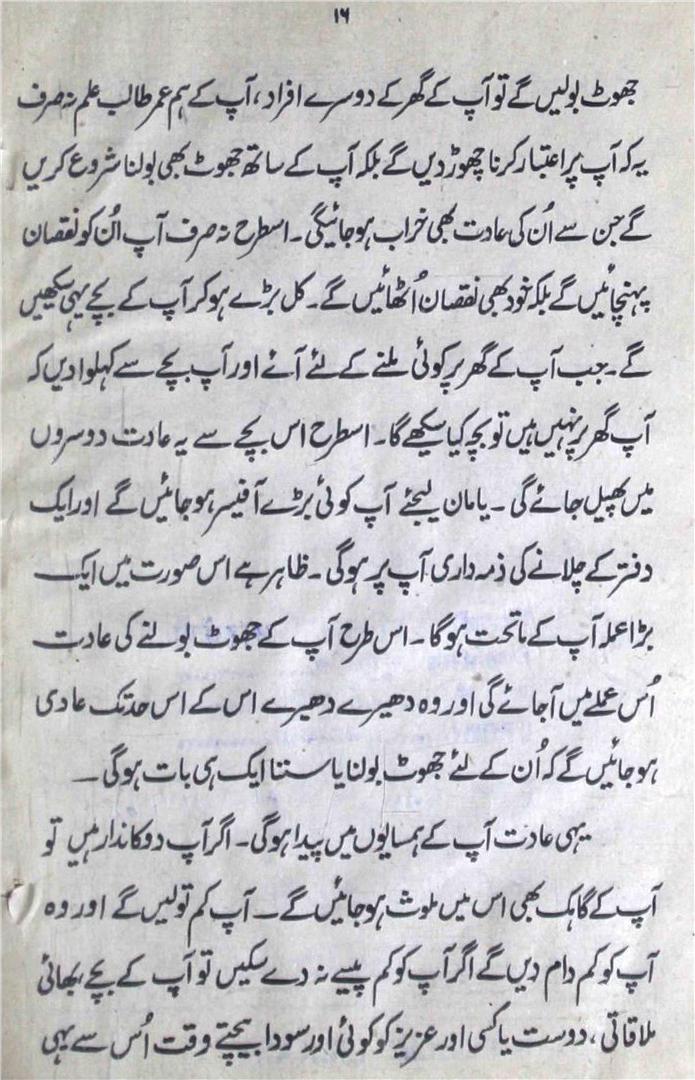 ۱۶
جھوٹ بولیں گے تو آپ کے گھر کے دوسرے افراد ، آپ کے ہم عمر طالب علم نہ صرف
یہ کہ آپ پر اعتبار کرنا چھوڑ دیں گے بلکہ آپ کے ساتھ جھوٹ بھی بولنا شروع کریں
گے جن سے اُن کی عادت بھی خراب ہو جائیگی ۔ اسطرح نہ صرف آپ اُن کو نقصان
پہنچائیں گے بلکہ خود بھی نقصان اُٹھائیں گے ۔ کل بڑے ہو کر آپ کے بچے یہی سیکھیں
گے ۔ جب آپ کے گھر پر کوئی ملنے کے لئے آئے اور آپ بچے سے کہلوا دیں کہ
آپ گھر پر نہیں ہیں تو بچہ کیا سیکھے گا ۔ اسطرح اس بچے سے یہ عادت دوسروں
میں پھیل جائے گی ۔ یا مان لیجئے آپ کوئی بڑے آفیسر ہو جائیں گے اور ایک
دفتر کے چلانے کی ذمہ داری آپ پر ہوگی ۔ ظاہر ہے اس صورت میں ایک
بڑا عملہ آپ کے ماتحت ہوگا ۔ اس طرح آپ کے جھوٹ بولنے کی عادت
اُس عملے میں آجائے گی اور وہ دھیرے دھیرے اس کے اس حد تک عادی
ہو جائیں گے کہ اُن کے لئے جھوٹ بولنا یا سننا ایک ہی بات ہوگی ۔
یہی عادت آپ کے ہمسایوں میں پیدا ہوگی ۔ اگر آپ دوکاندار ہیں تو
آپ کے گاہک بھی اس میں ملوث ہو جائیں گے ۔ آپ کم تولیں گے اور وہ
آپ کو کم دام دیں گے اگر آپ کو کم پیسے نہ دے سکیں تو آپ کے بچے ، بھائی
ملاقاتی ، دوست یا کسی اور عزیز کو کوئی اور سودا بیچتے وقت اُس سے یہی